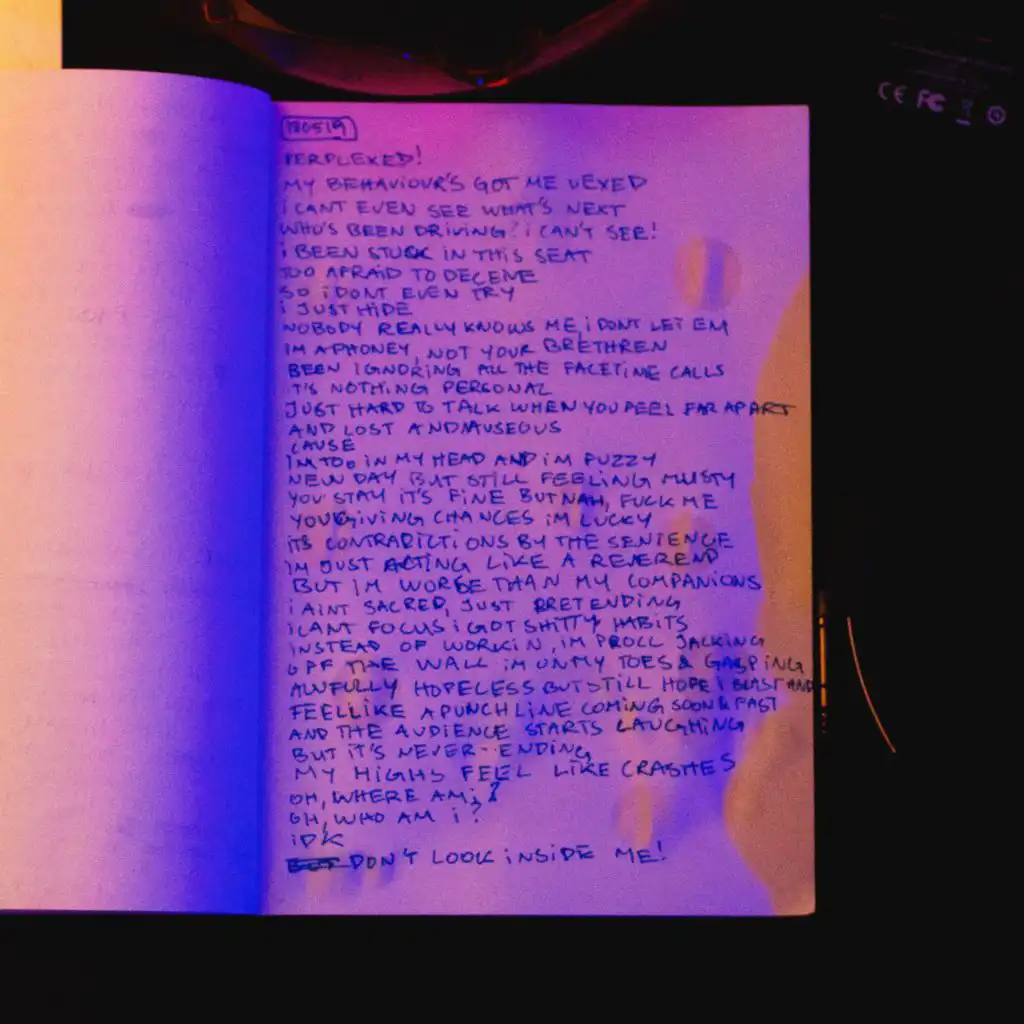 180519
PERPLEXED!
MY BEHAVIOUR'S GOT ME VEXED
i CANT EVEN SEE WHAT'S NEXT
WHO'S BEEN DRIVING? i CAN'T SEE!
i BEEN STUCK iN THIS SEAT
TOO AFRAiD TO DECEIVE
SO i DONT EVEN TRY
i JUST HiDE
NOBODY REALLY KNOWS ME, i DONT LET EM
IM A PHONEY, NOT YOUR BRETHREN
BEEN IGNORING ALL THE FACETIME CALLS
IT'S NOTHING PERSONAL
JUST HARD TO TALK WHEN YOU FEEL FAR APART
AND LOST AND NAUSEOUS
CAUSE
I'M TOO iN MY HEAD AND iM FUZZY
NEW DAY BUT STILL FEELING MUSTY
YOU STAY IT'S FINE BUT NAH, FUCK ME
YOU GiVING CHANCES iM LUCKY
ITS CONTRADICTIONS BY THE SENTENCE
IM JUST ACTING LIKE A REVEREND
BUT IM WORSE THAN MY COMPANIONS
i AINT SACRED, JUST PRETENDING
i CANT FOCUS i GOT SHITTY HABITS
INSTEAD OF WORKIN, iM PROLL JACKING
OFF THE WALL iM ON MY TOES & GASPING
AWFULLY HOPELESS BUT STILL HOPE I BLAST AND
FEEL LIKE A PUNCHLINE COMING SOON & FAST
AND THE AUDIENCE STARTS LAUGHING
BUT iT'S NEVER-ENDING
MY HIGHS FEEL LIKE CRASHES
OH, WHERE AM i?
OH, WHO AM i?
iDK
DON'T LOOK iNSiDE ME!
CE FC